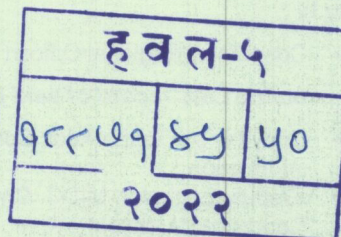 हवल-५
१८८७१ ४५ ५०
२०२२